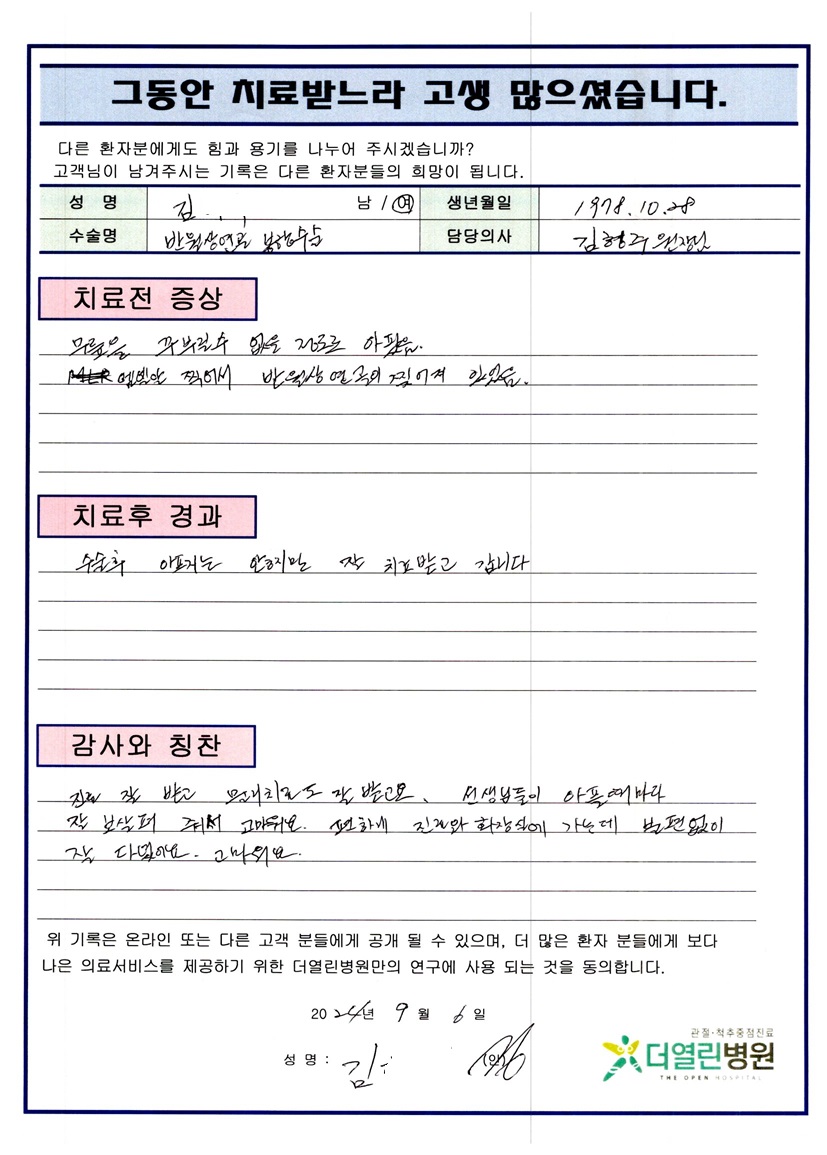 그동안 치료받느라 고생 많으셨습니다.
다른 환자분에게도 힘과 용기를 나누어 주시겠습니까?
고객님이 남겨주시는 기록은 다른 환자분들의 희망이 됩니다.
성 명 김 남 / 여 생년월일 1978.10.28
수술명 반월상연골 봉합수술 담당의사 김형주 원장님
치료전 증상
무릎을 구부릴수 없을 정도로 아팠음.
엠알아 찍어서 반월상 연골의 찢어져 있었음.
치료후 경과
수술후 아프지는 안하지만 잘 치료받고 갑니다
감사와 칭찬
진료 잘 받고 잘 받고요. 선생님들이 아플때마다
잘 보살펴 줘서 고마워요. 편하게 진료와 화장실에 가는데 불편없이
잘 다녔어요. 고마워요.
위 기록은 온라인 또는 다른 고객 분들에게 공개 될 수 있으며, 더 많은 환자 분들에게 보다
나은 의료서비스를 제공하기 위한 더열린병원만의 연구에 사용 되는 것을 동의합니다.
2024년 9월 6일
성 명 : 김 (인)
관절·척추중점진료
더열린병원
THE OPEN HOSPITAL